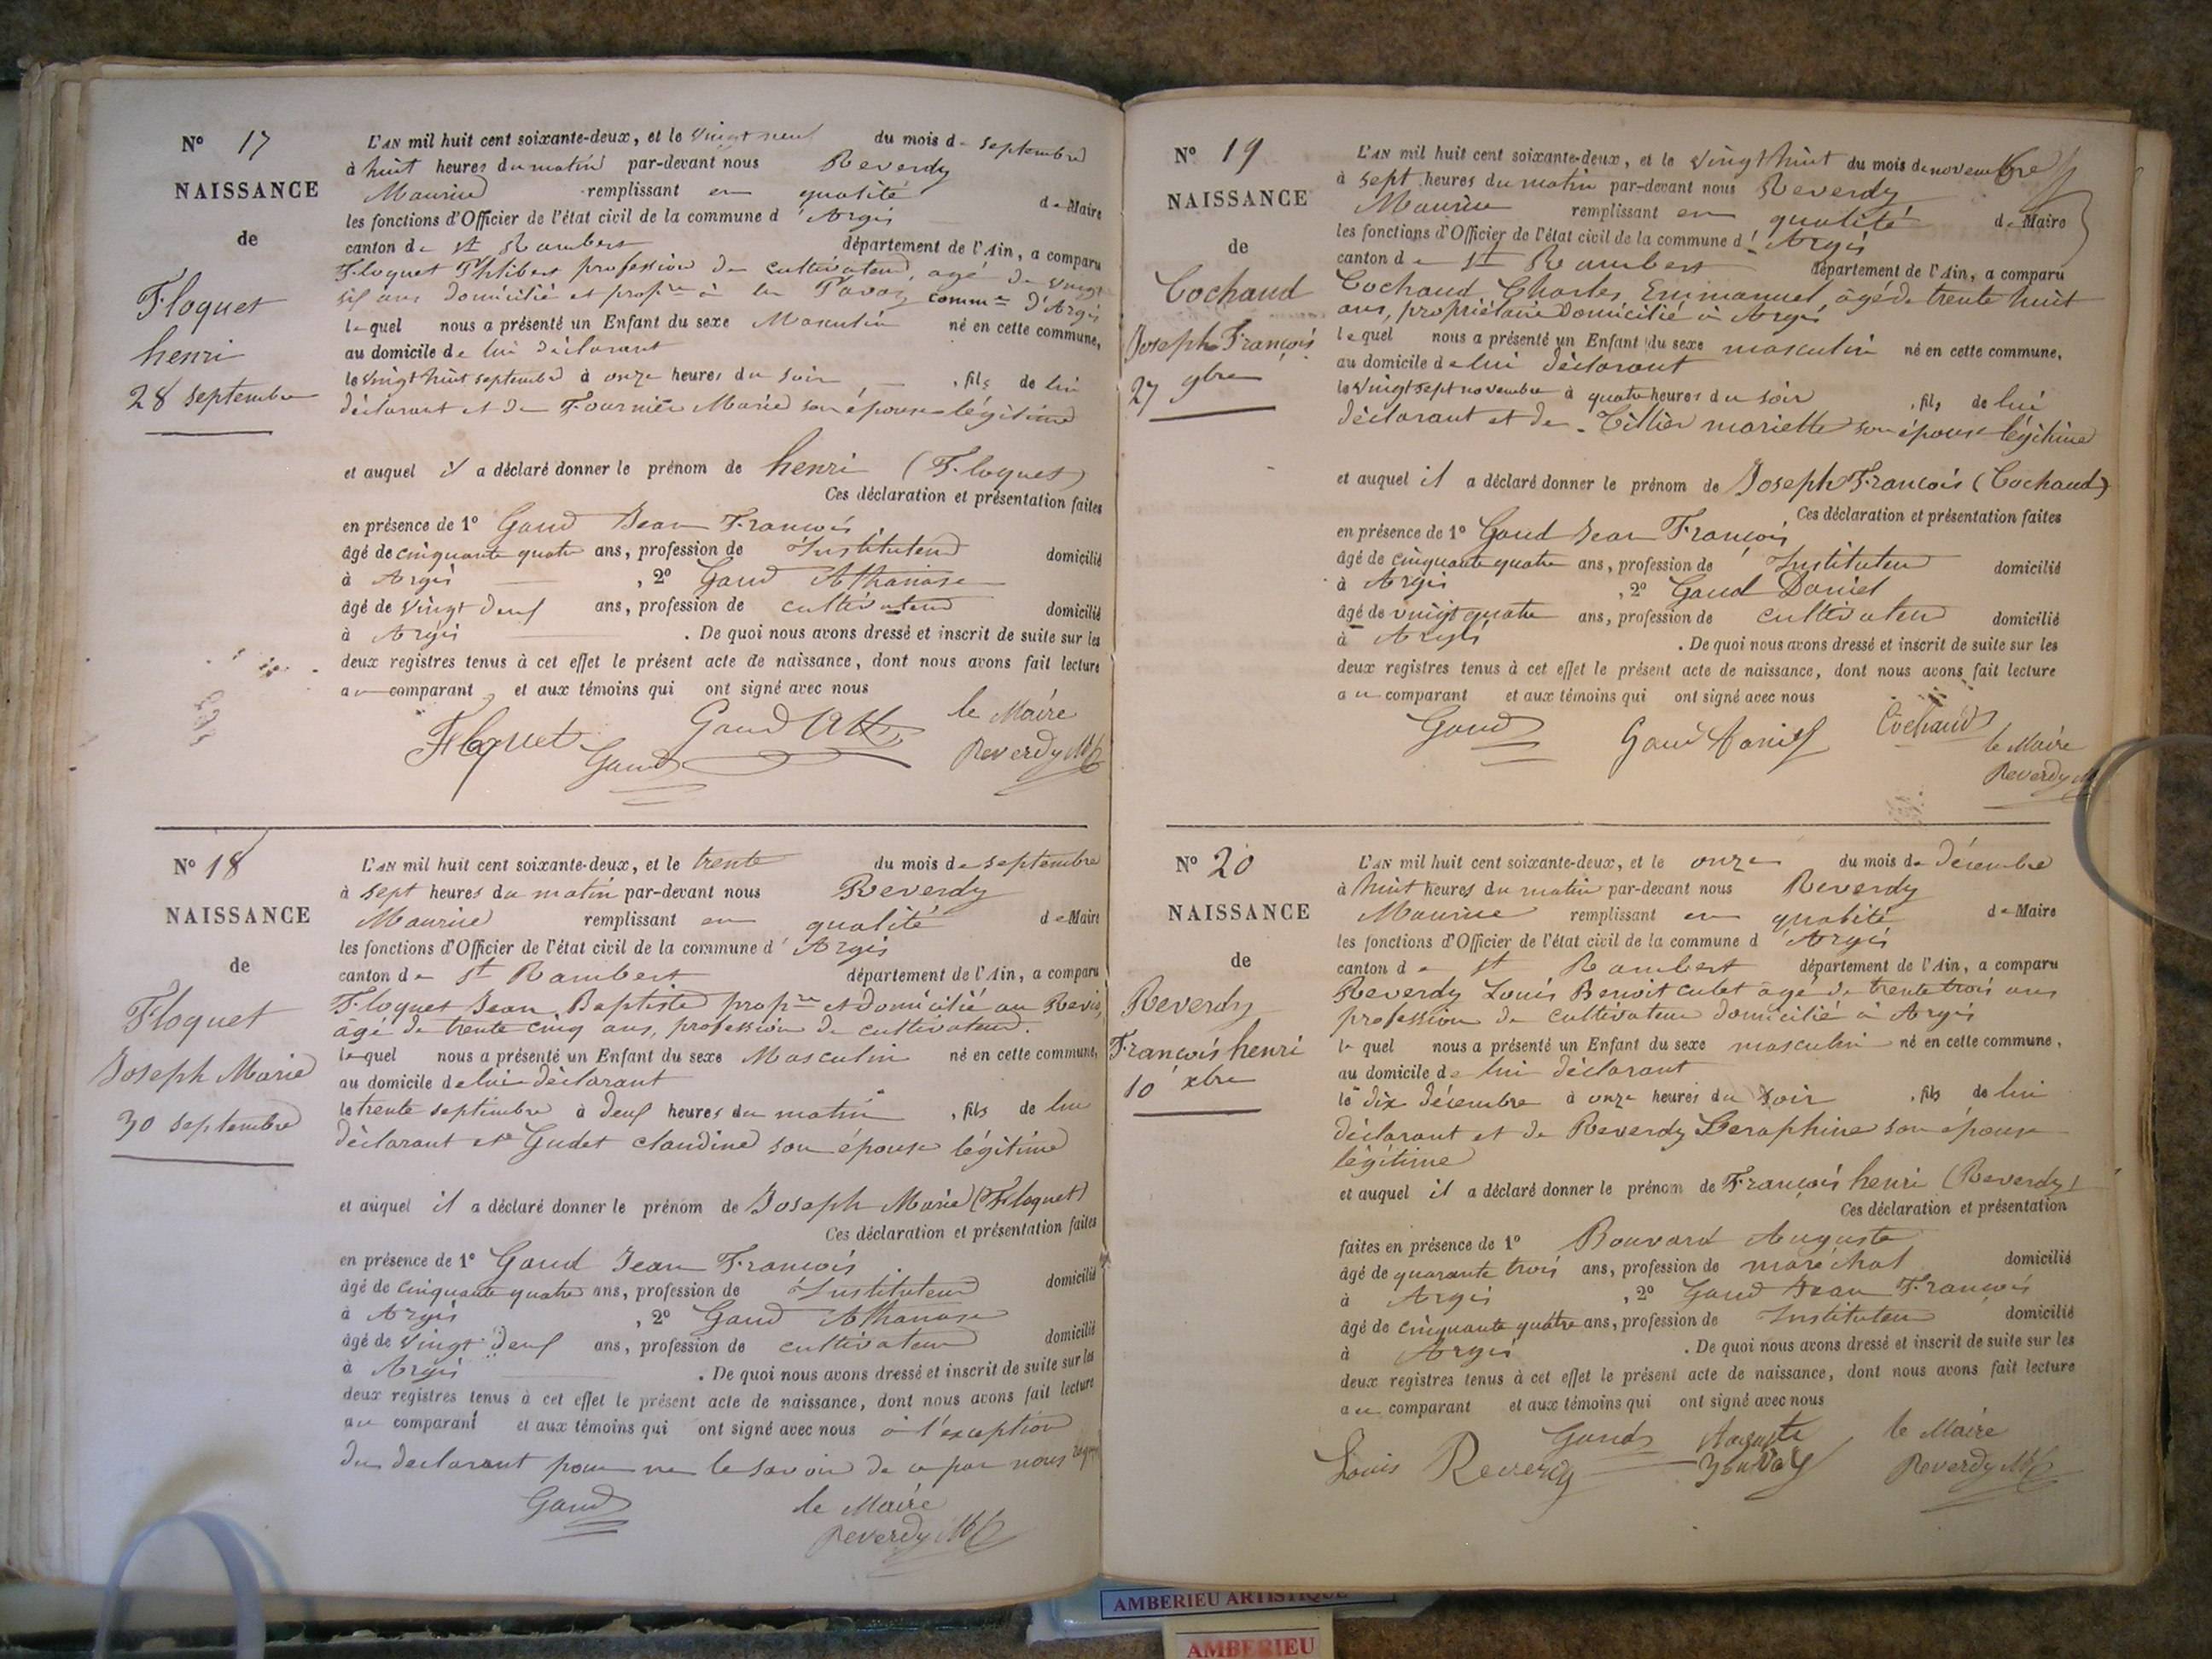 N° 17
NAISSANCE
de
Floquet
henri
28 septembre
L'AN mil huit cent soixante-deux, et le vingt neuf du mois de septembre
à huit heures du matin par-devant nous Reverdy
Maurice remplissant en qualité de Maire
les fonctions d'Officier de l'état civil de la commune d'Argis
canton de St Rambert département de l'Ain, a comparu
Floquet Philibert profession de cultivateur, agé de vingt
six ans domicilié et propre à la Pavaz comme d'Argis
lequel nous a présenté un Enfant du sexe Masculin né en cette commune,
au domicile de lui déclarant
le vingt huit septembre à onze heures du soir, fils de lui
déclarant et de Fournier Marie son épouse légitime
et auquel il a déclaré donner le prénom de henri (Floquet)
Ces déclaration et présentation faites
en présence de 1° Gaud Jean François
âgé de cinquante quatre ans, profession de Instituteur domicilié
à Argis , 2° Gaud Athanase
âgé de vingt deux ans, profession de cultivateur domicilié
à Argis . De quoi nous avons dressé et inscrit de suite sur les
deux registres tenus à cet effet le présent acte de naissance, dont nous avons fait lecture
au comparant, et aux témoins qui ont signé avec nous
Floquet Gaud Gaud Ath le Maire
Reverdy M
N° 18
NAISSANCE
de
Floquet
Joseph Marie
30 septembre
L'AN mil huit cent soixante-deux, et le trente du mois de septembre
à sept heures du matin par-devant nous Reverdy
Maurice remplissant en qualité de Maire
les fonctions d'Officier de l'état civil de la commune d'Argis
canton de St Rambert département de l'Ain, a comparu
Floquet Jean Baptiste propre et domicilié au
âgé de trente cinq ans, profession de cultivateur.
lequel nous a présenté un Enfant du sexe Masculin né en cette commune,
au domicile de lui déclarant
le trente septembre à deux heures du matin, fils de lui
déclarant et Gudet claudine son épouse légitime
et auquel il a déclaré donner le prénom de Joseph Marie (Floquet)
Ces déclaration et présentation faites
en présence de 1° Gaud Jean François
âgé de cinquante quatre ans, profession de Instituteur domicilié
à Argis , 2° Gaud Athanase
âgé de vingt deux ans, profession de cultivateur domicilié
à Argis . De quoi nous avons dressé et inscrit de suite sur les
deux registres tenus à cet effet le présent acte de naissance, dont nous avons fait lecture
au comparant et aux témoins qui ont signé avec nous à l'exception
du déclarant pour ne le savoir de ce par nous
Gaud le Maire
Reverdy M
N° 19
NAISSANCE
de
Cochaud
Joseph François
27 9bre
L'AN mil huit cent soixante-deux, et le vingt huit du mois de novembre
à sept heures du matin par-devant nous Reverdy
Maurice remplissant en qualité de Maire
les fonctions d'Officier de l'état civil de la commune d'Argis
canton de St Rambert département de l'Ain, a comparu
Cochaud Charles Emmanuel, âgé de trente huit
ans, propriétaire domicilié à Argis
lequel nous a présenté un Enfant du sexe masculin né en cette commune,
au domicile de lui déclarant
le vingt sept novembre à quatre heures du soir, fils de lui
déclarant et de Tillier mariette son épouse légitime
et auquel il a déclaré donner le prénom de Joseph François (Cochaud)
Ces déclaration et présentation faites
en présence de 1° Gaud Jean François
âgé de cinquante quatre ans, profession de Instituteur domicilié
à Argis , 2° Gaud Daniel
âgé de vingt quatre ans, profession de cultivateur domicilié
à Argis . De quoi nous avons dressé et inscrit de suite sur les
deux registres tenus à cet effet le présent acte de naissance, dont nous avons fait lecture
au comparant et aux témoins qui ont signé avec nous
Gaud Gaud Cochaud le Maire
Reverdy M
N° 20
NAISSANCE
de
Reverdy
François henri
10 xbre
L'AN mil huit cent soixante-deux, et le onze du mois de décembre
à huit heures du matin par-devant nous Reverdy
Maurice remplissant en qualité de Maire
les fonctions d'Officier de l'état civil de la commune d'Argis
canton de St Rambert département de l'Ain, a comparu
Reverdy Louis Benoit cubet âgé de trente trois ans
profession de cultivateur domicilié à Argis
lequel nous a présenté un Enfant du sexe masculin né en cette commune,
au domicile de lui déclarant
le dix décembre à onze heures du soir, fils de lui
déclarant et de Reverdy Seraphine son épouse
légitime
et auquel il a déclaré donner le prénom de François henri (Reverdy)
Ces déclaration et présentation
faites en présence de 1° Bouvard Auguste
âgé de quarante trois ans, profession de maréchal domicilié
à Argis , 2° Gaud Jean François
âgé de cinquante quatre ans, profession de Instituteur domicilié
à Argis . De quoi nous avons dressé et inscrit de suite sur les
deux registres tenus à cet effet le présent acte de naissance, dont nous avons fait lecture
au comparant et aux témoins qui ont signé avec nous
Louis Reverdy Gaud Auguste le Maire
Reverdy M
AMBERIEU ARTISTIQUE
AMBERIEU